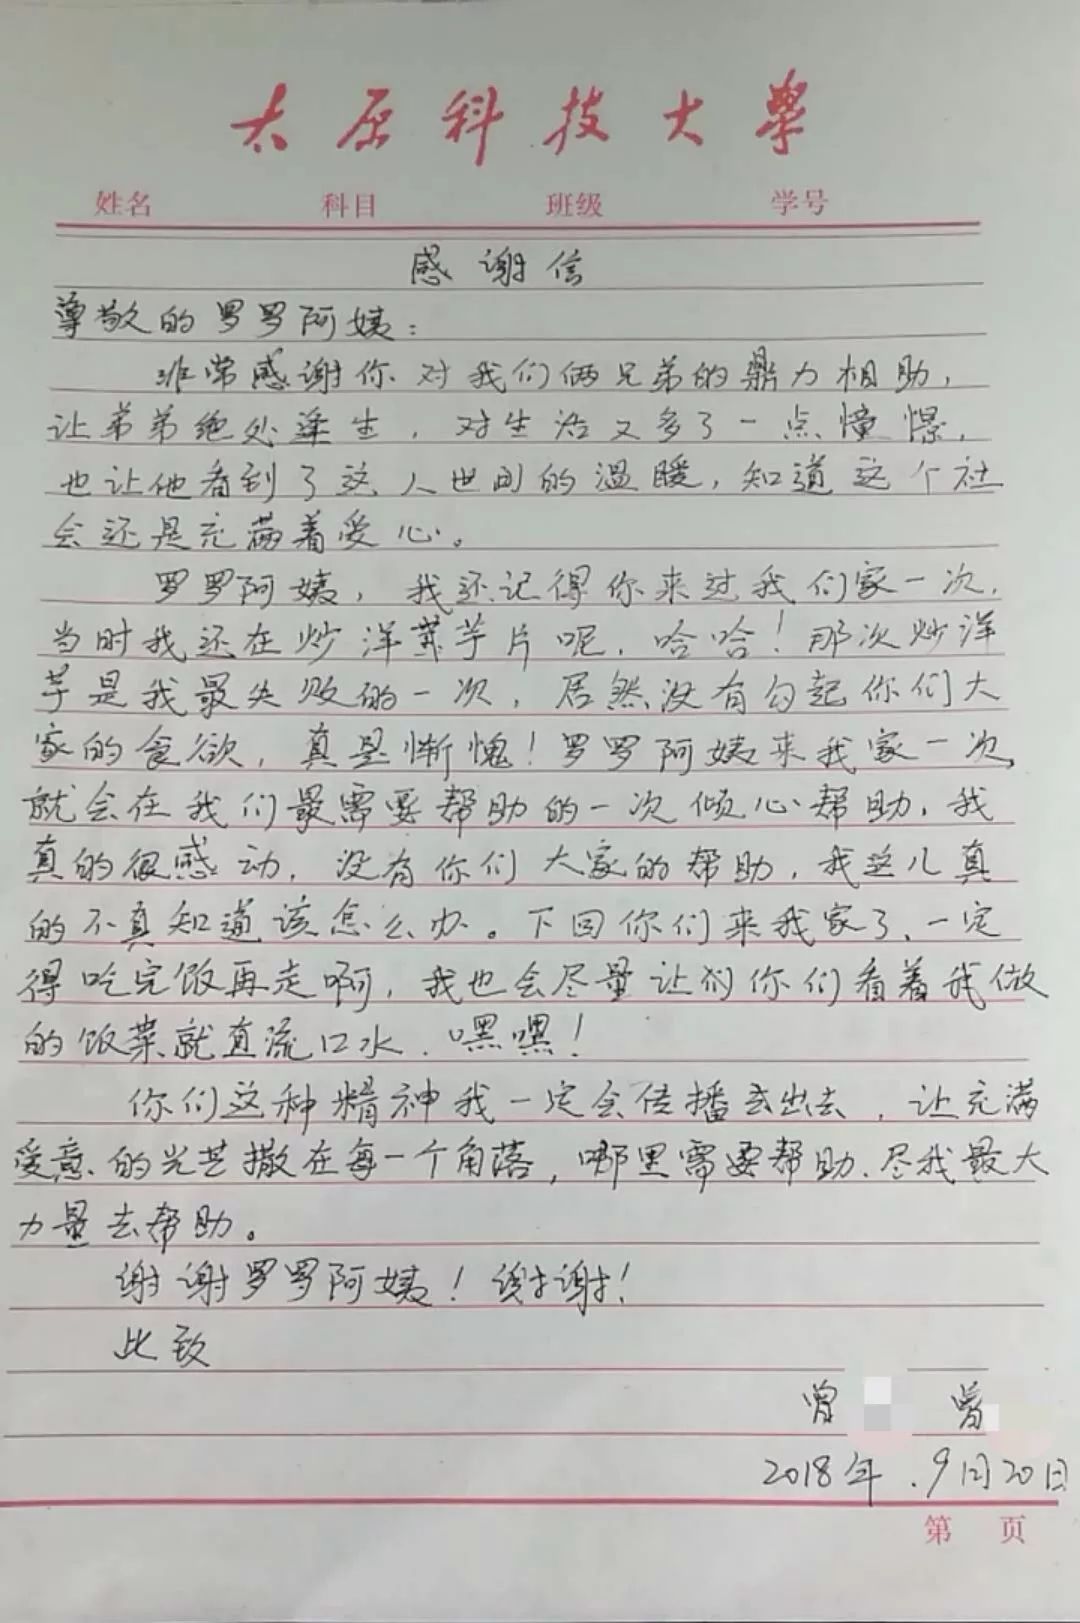 太原科技大學
姓名 科目 班级 学号
感谢信
尊敬的罗罗阿姨：
非常感谢你对我们俩兄弟的鼎力相助，
让弟弟绝处逢生，对生活又多了一点憧憬，
也让他看到了这人世间的温暖，知道这个社
会还是充满着爱心。
罗罗阿姨，我还记得你来过我们家一次，
当时我还在炒洋芋片呢，哈哈！那次炒洋
芋是我最失败的一次，居然没有勾起你们大
家的食欲，真是惭愧！罗罗阿姨来我家一次，
就会在我们最需要帮助的一次倾心帮助，我
真的很感动，没有你们大家的帮助，我这儿真
的不真知道该怎么办。下回你们来我家了，一定
得吃完饭再走啊，我也会尽量让你们看着我做
的饭菜就直流口水，嘿嘿！
你们这种精神我一定会传播出去，让充满
爱意的光芒撒在每一个角落，哪里需要帮助，尽我最大
力量去帮助。
谢谢罗罗阿姨！谢谢！
此致
曾 曾
2018年.9月20日
第 页